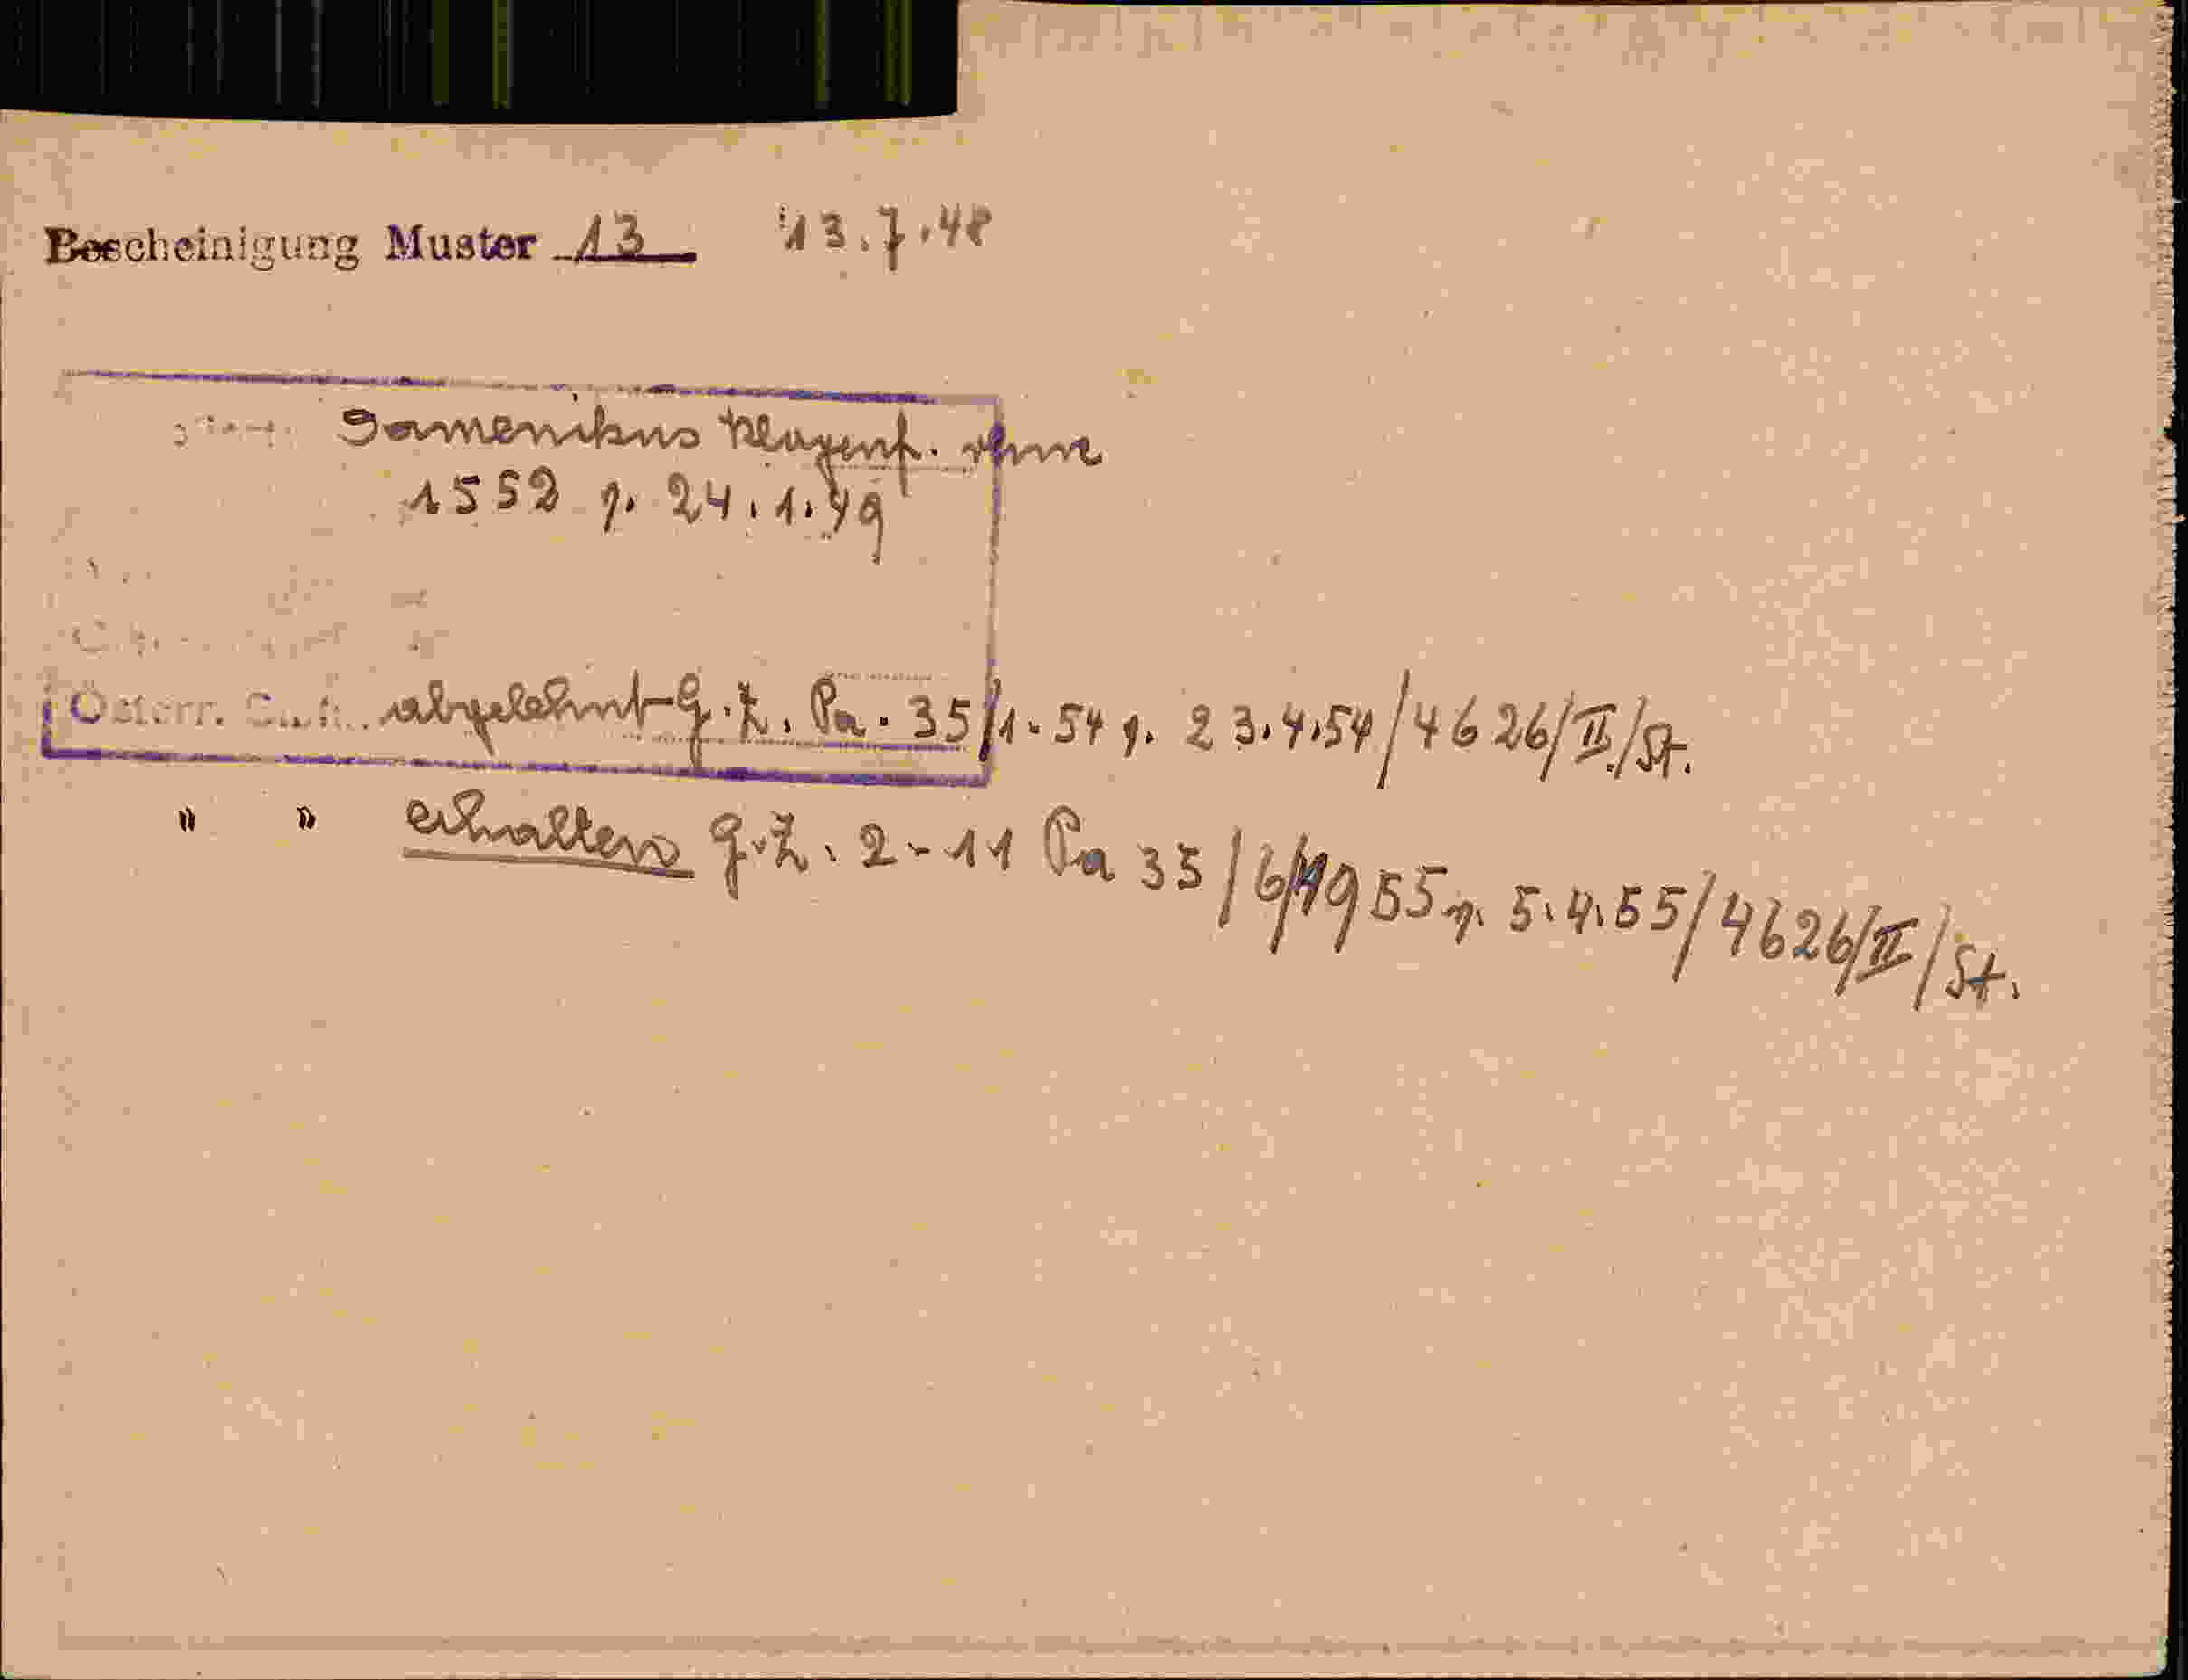 Bescheinigung Muster 13 13.7.48
Klagenf. ohne
1552 v. 24.1.49
Österr. abgelehnt G.Z. Pa. 35/1-54 v. 23.4.54/4626/II/St.
" " erhalten G.Z. 2-11 Pa 35/6/1955 v. 5.4.55/4626/II/St.